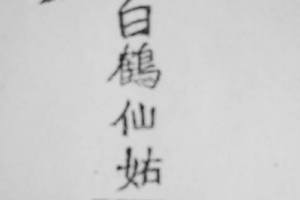 白鶴仙姑